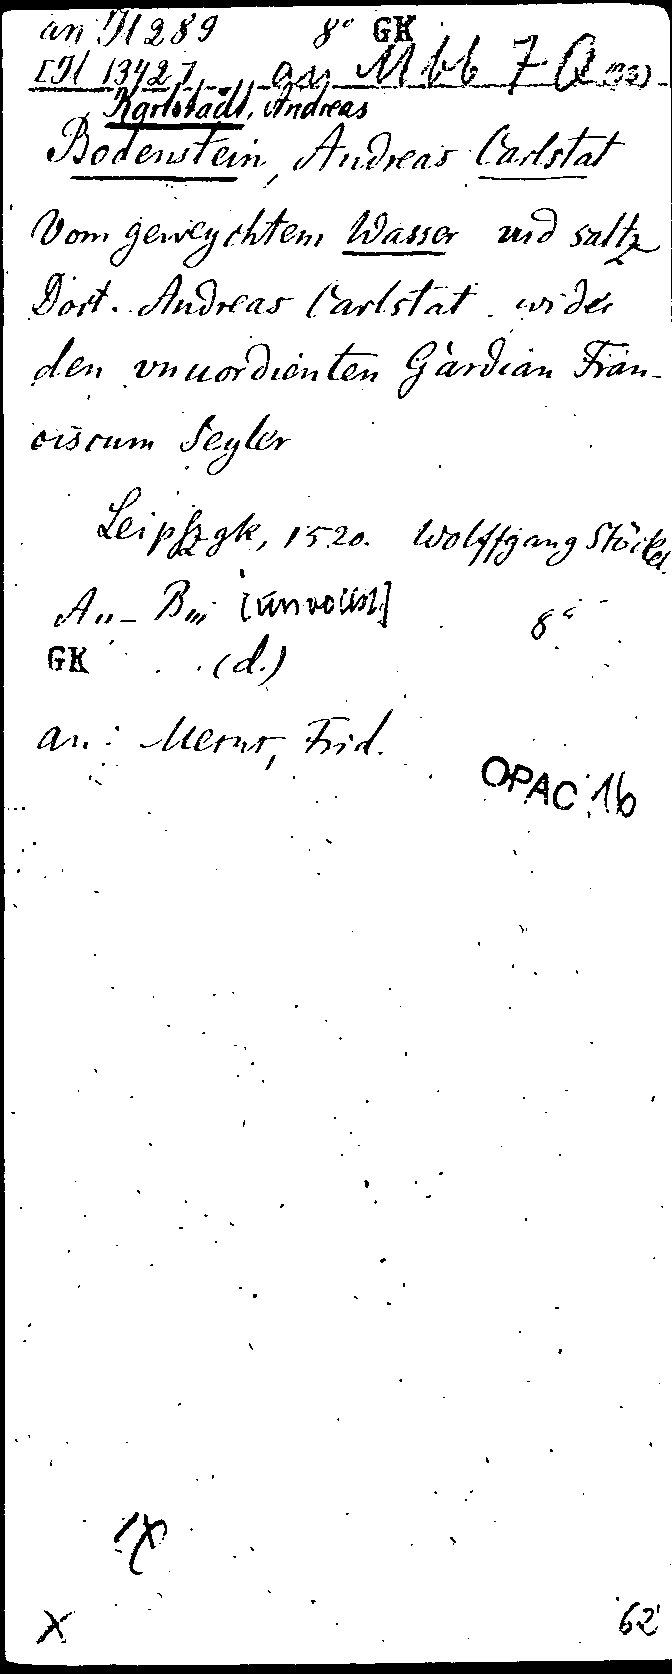 an Il 289 8° GK
[Il 13427] an M bb 7 Q
Karlstadt, Andreas
Bodenstein, Andreas Carlstat
Vom geweychtem Wasser und saltz
Doct. Andreas Carlstat wider
den vnuordienten Gardian Fran-
ciscum Seyler
Leipszgk, 1520. Wolffgang Stöckel.
A11 - B111 [unvollst.] 8°
GK (d.)
an: Frid.
OPAC 16
1x
X 62